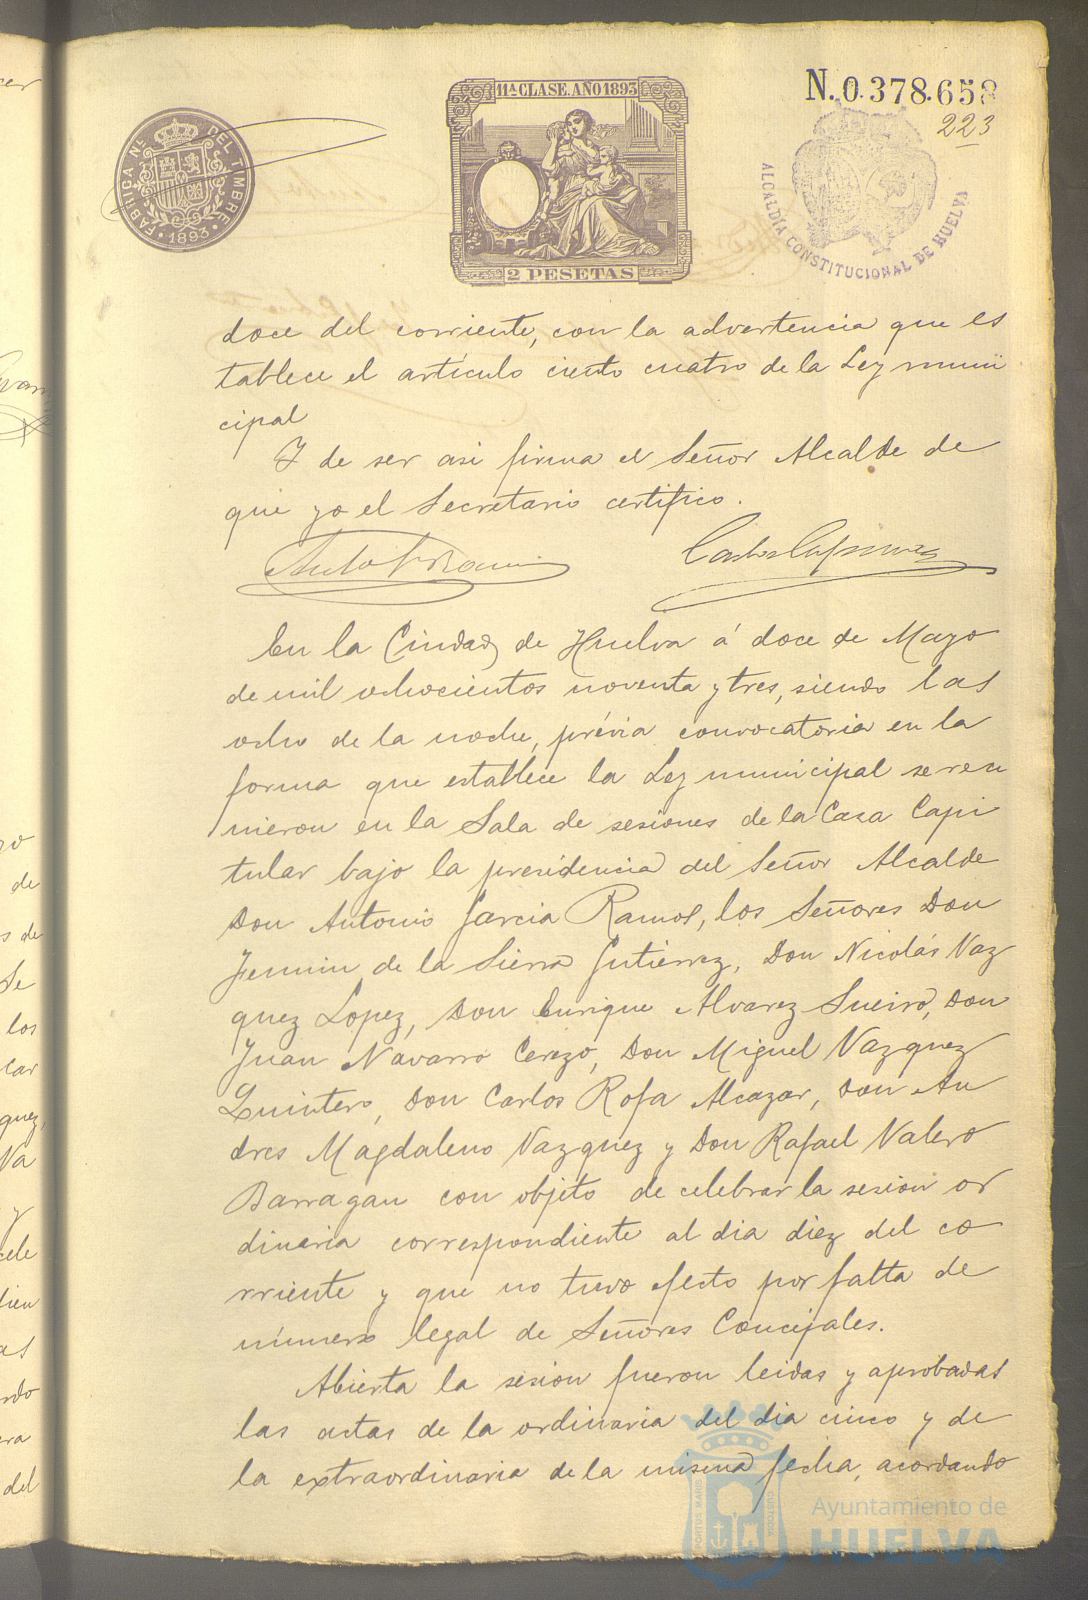 11ª CLASE. AÑO 1893
N.0.378.658
223
FABRICA Nal. DEL TIMBRE
1893
ALCALDÍA CONSTITUCIONAL DE HUELVA
2 PESETAS
doce del corriente, con la advertencia que es
tablece el artículo ciento cuatro de la Ley muni
cipal
Y de ser asi firma el Señor Alcalde de
que yo el Secretario certifico.
En la Ciudad de Huelva á doce de Mayo
de mil ochocientos noventa y tres, siendo las
ocho de la noche, prévia convocatoria en la
forma que establece la Ley municipal se reu
nieron en la Sala de sesiones de la Casa Capi
tular bajo la presidencia del Señor Alcalde
Don Antonio Garcia Ramos, los Señores Don
Fermin de la Sierra Gutiérrez, Don Nicolás Vaz
quez Lopez, Don Enrique Alvarez Sueiro, Don
Juan Navarro Cerezo, Don Miguel Vazquez
Quintero, Don Carlos Rofa Alcazar, Don An
dres Magdaleno Vazquez y Don Rafael Valero
Barragan con objeto de celebrar la sesion or
dinaria correspondiente al dia diez del co
rriente y que no tuvo efecto por falta de
número legal de Señores Concejales.
Abierta la sesion fueron leidas y aprobadas
las actas de la ordinaria del dia cinco y de
la extraordinaria de la misma fecha, acordando
PORTUS MARIS
CUSTODIA
Ayuntamiento de
HUELVA